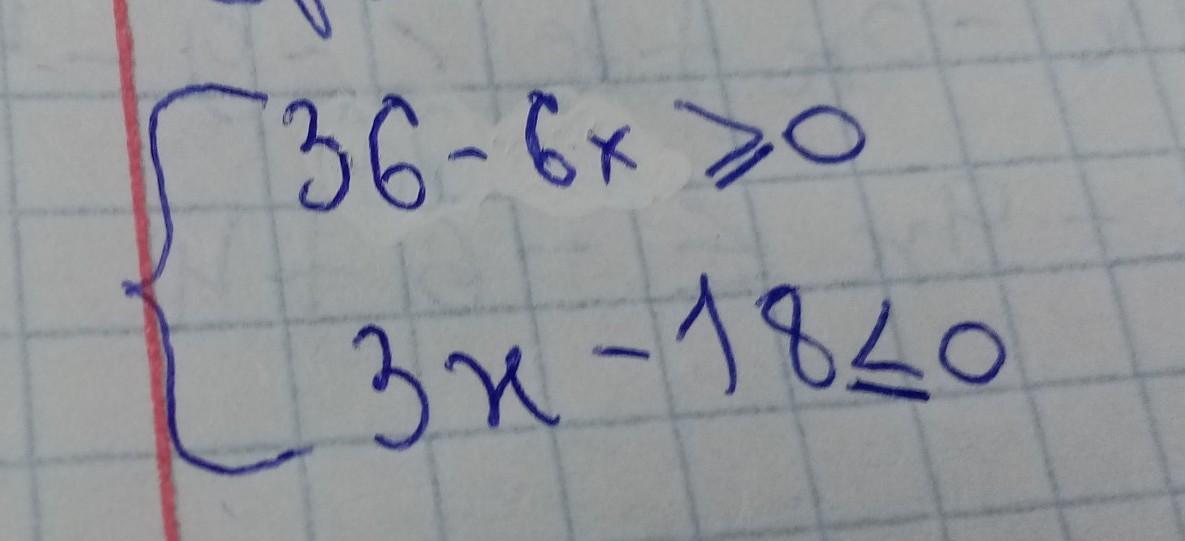 36 - 6x ⩾ 0
3x - 18 ≤ 0